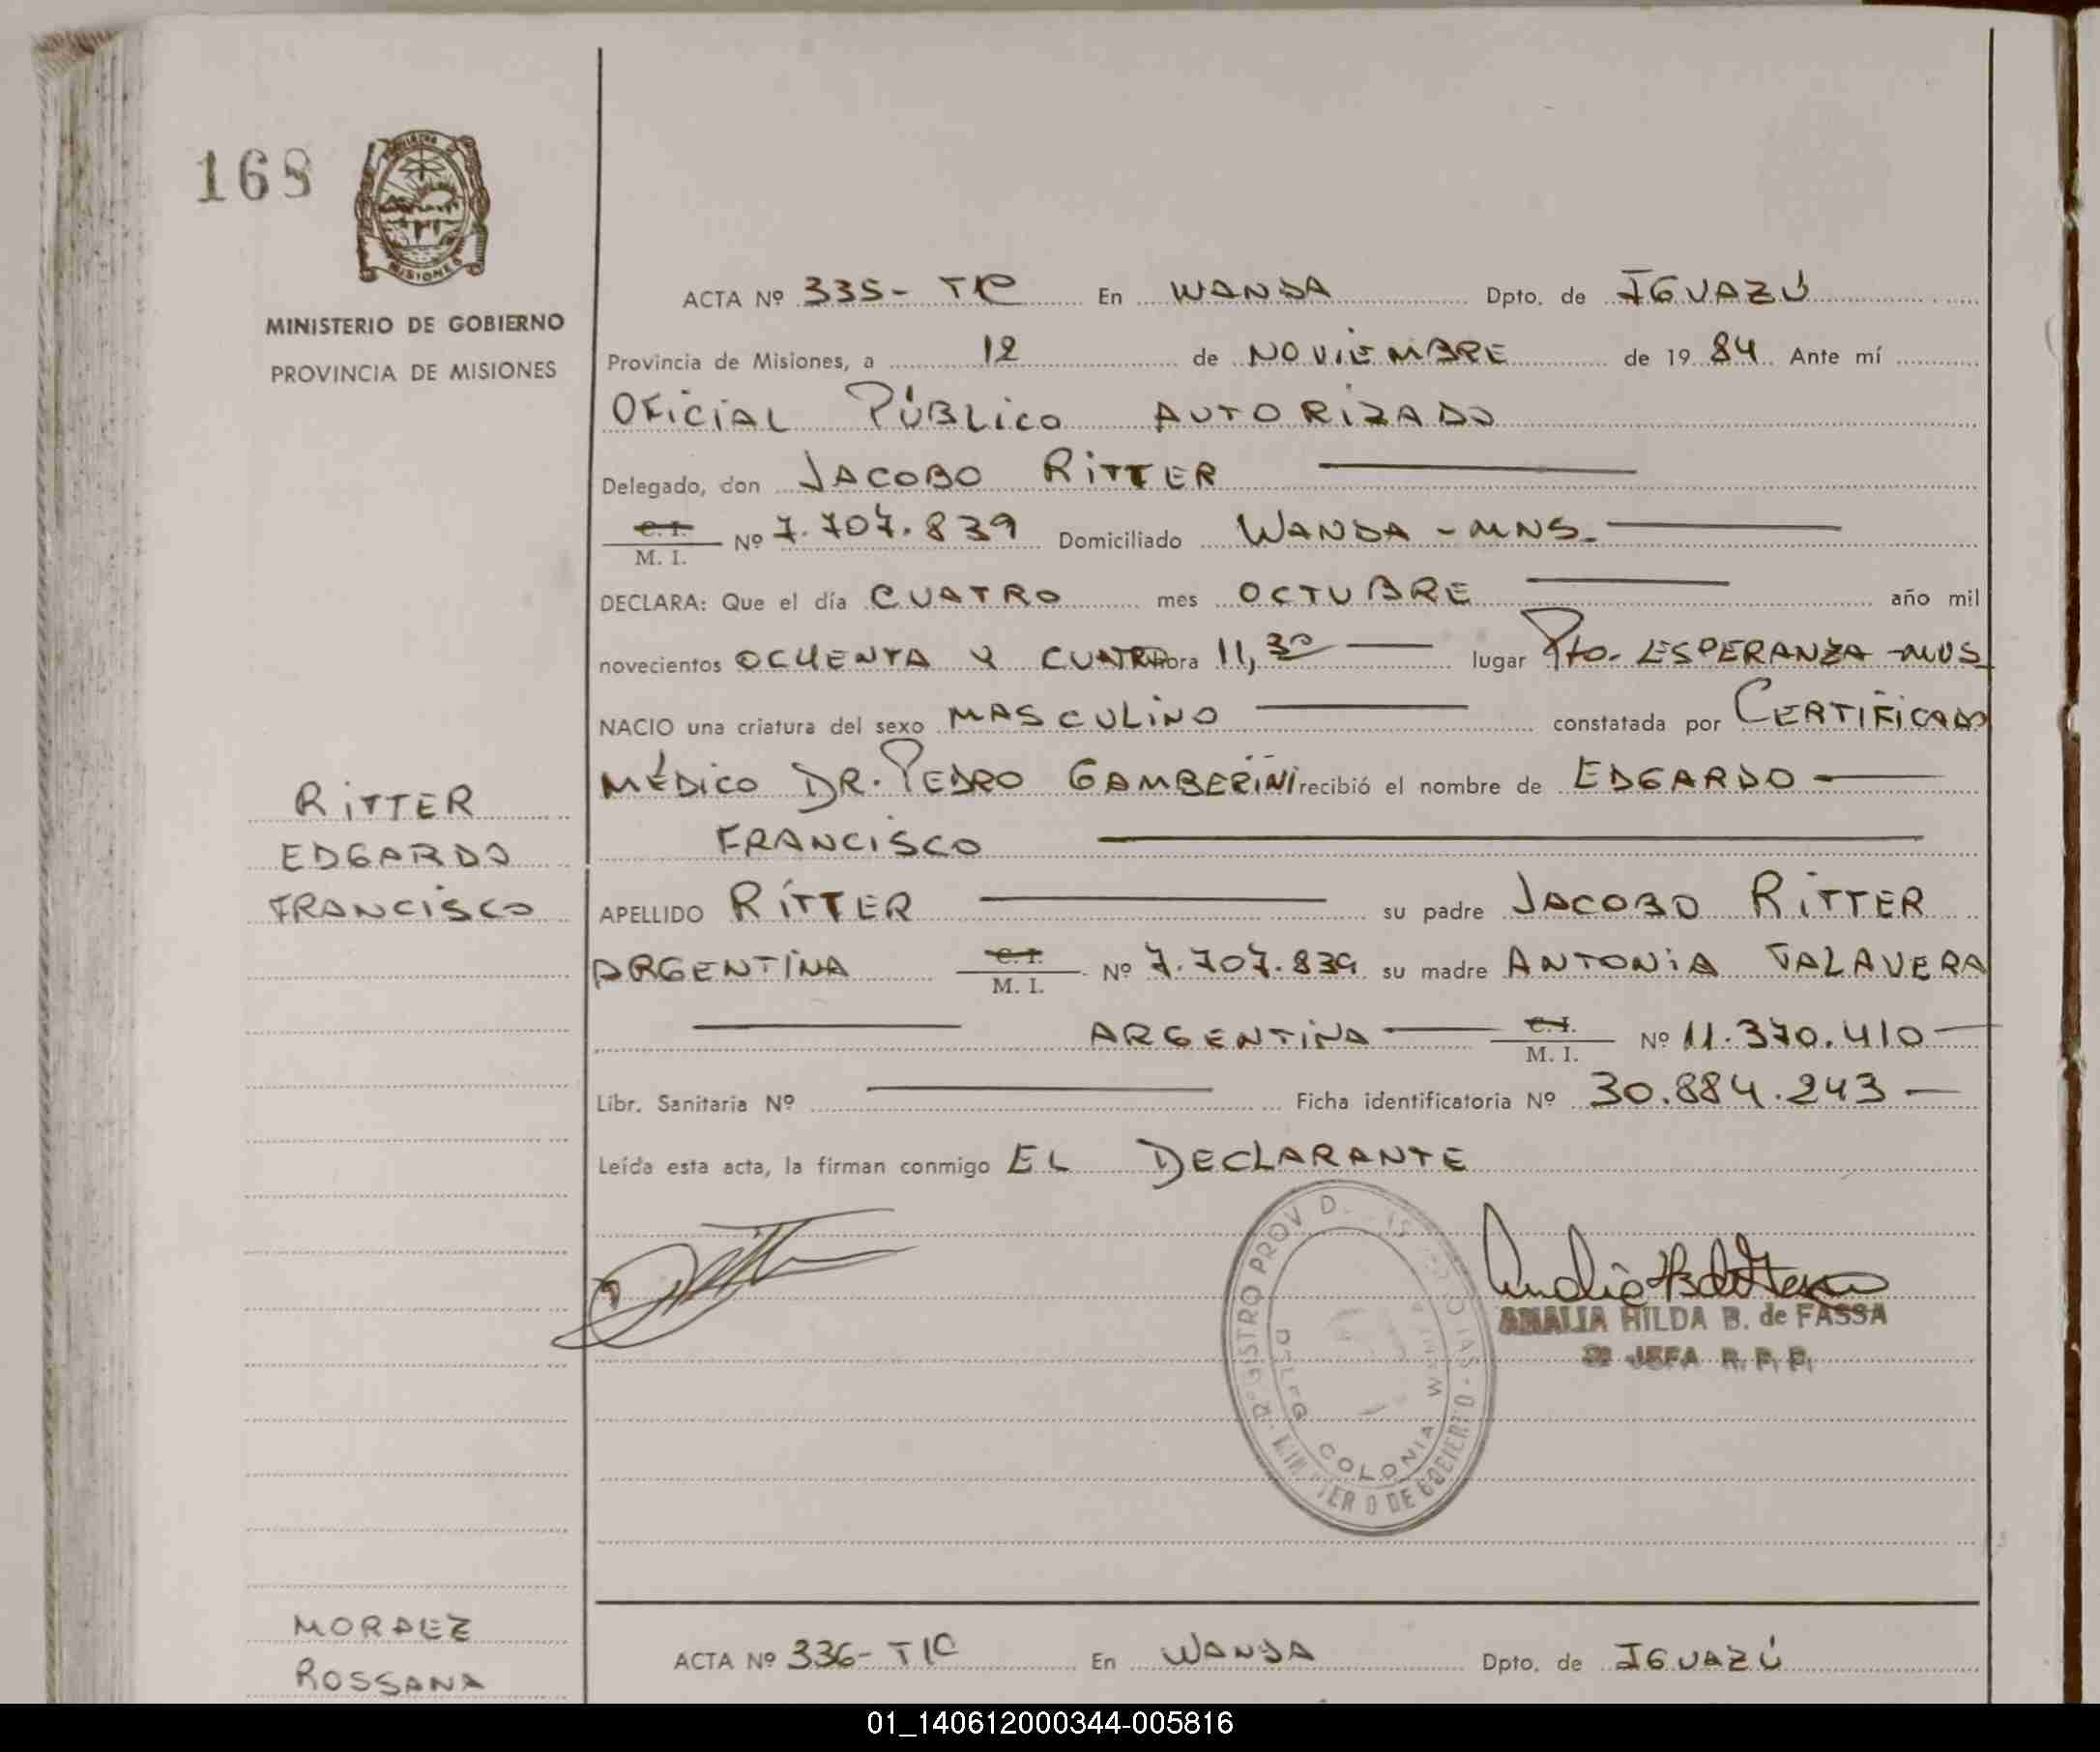 168
MISIONES
MINISTERIO DE GOBIERNO
PROVINCIA DE MISIONES
ACTA Nº 335- TIC En WANDA Dpto. de IGUAZÚ
Provincia de Misiones, a 12 de NOVIEMBRE de 19 84 Ante mí
OFICIAL PÚBLICO AUTORIZADO
Delegado, don JACOBO RITTER
C. I.
M. I. Nº 7.707.839 Domiciliado WANDA - MNS.
DECLARA: Que el día CUATRO mes OCTUBRE año mil
novecientos OCHENTA Y CUATRO hora 11,30 lugar Pto. ESPERANZA - MNS
NACIO una criatura del sexo MASCULINO constatada por CERTIFICADO
MÉDICO DR. PEDRO GAMBERINI recibió el nombre de EDGARDO
FRANCISCO
RITTER
EDGARDO
FRANCISCO
APELLIDO RITTER su padre JACOBO RITTER
ARGENTINA C. I.
M. I. Nº 7.707.839 su madre ANTONIA TALAVERA
ARGENTINA C. I.
M. I. Nº 11.370.410
Libr. Sanitaria Nº Ficha identificatoria Nº 30.884.243
Leída esta acta, la firman conmigo EL DECLARANTE
AMALIA HILDA B. de FASSA
JEFA R. P. P.
COLONIA WANDA
MINISTERIO DE GOBIERNO
MORAEZ
ROSSANA
ACTA Nº 336- TIC En WANDA Dpto. de IGUAZÚ
01_140612000344-005816